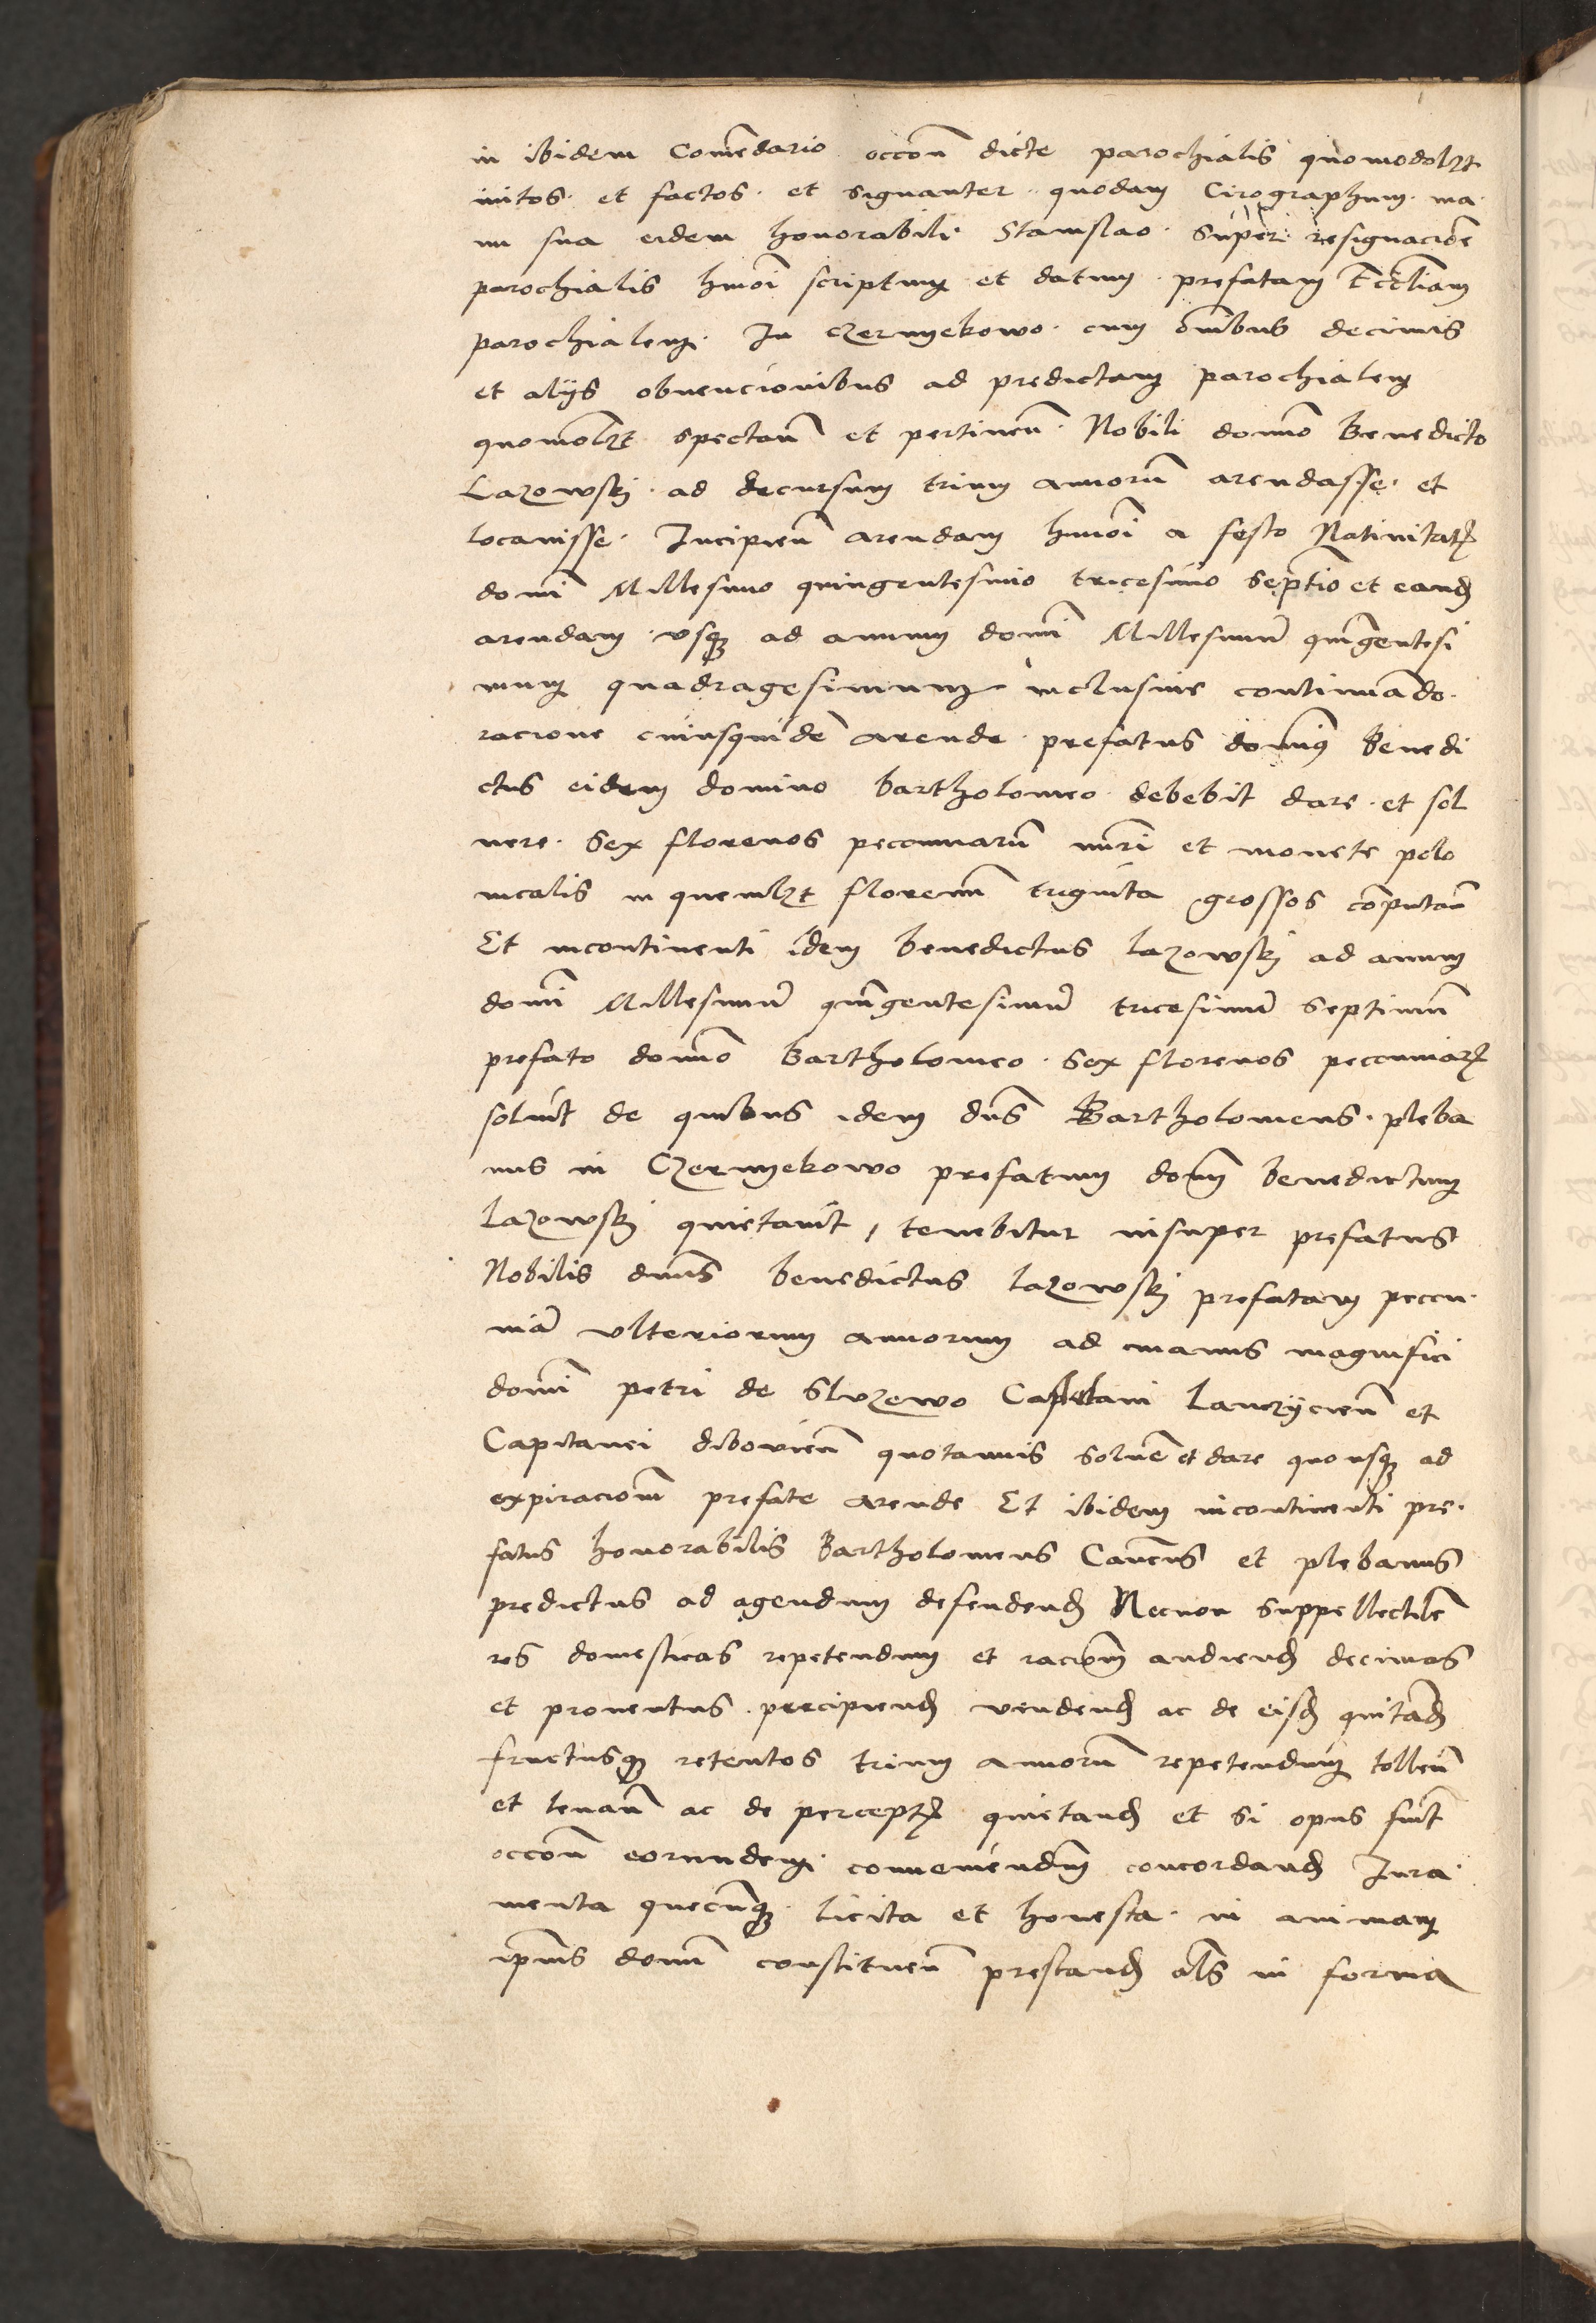 in ibidem Comēdario occōn dicte parochialis quomodolʒt
initos et factos et signanter quodam Cirographum ma
nu sua eidem honorabili Stanislao super resignacioē
parochialis hmōi scriptum et datum prefatam Eccliam
parochialem In Czernyekowo cum oībus decimis
et alijs obuencionibus ad predictam parochialem
quomolʒt spectań et pertineń Nobili domīo Benedicto
Lazowskj ad decursum trium annorū arendasse et
locauisse Incipień arendam hmōi a festo Natiuitatꝭ
domī Millesimo quingentesimo tricesimo septīo et eand
arendam vsqꝫ ad annum domī Millesimū quīgentesi
mum quadragesimum inclusiue continuādo
racione cuiusquidē arende prefatus domīꝰ Benedi
ctus eidem domino bartholomeo debebit dare et sol
uere sex florenos pecuniarū nūri et monete polo
nicalis in quemlʒt florenū triginta grossos cōputań
Et incontinenti idem benedictus lazowskj ad annum
domī Millesimū quīgentesimū tricesimū septimū
prefato domīo Bartholomeo sex florenos pecuniarꝫ
soluit de quibus idem dn̄s Bartholomeus pleba
nus in Czernyekowo prefatum domī benedictum
lazowskj quietauit, tenebitur insuper prefatus
Nobilis dnūs benedictus lazowskj prefatam pecu
niā vlteriorum annorum ad manus magnifici
domī petri de Sluzewo Castellani Lanczycień et
Capitanei dibowień quotannis soluē et dare quousqꝫ ad
expiraciom̄ prefate arende Et ibidem incontinenti pre
fatus honorabilis Bartholomeus Cau̅eus et plebanus
predictus ad agendum defendend Necnon suppellectilē
res domesticas repetendum et raciom̄ audiend decimas
et prouentus percipiend vendend ac de eisd quitād
fructusqꝫ retentos trium annorū repetendum tolleń
et leuań ac de perceptꝭ quietand et si opus fuīt
occōn eorundem conueniendm̄ concordand Iura
menta quecūqꝫ licita et honesta in animam
ip̄ius domī constitueń prestand als in forma